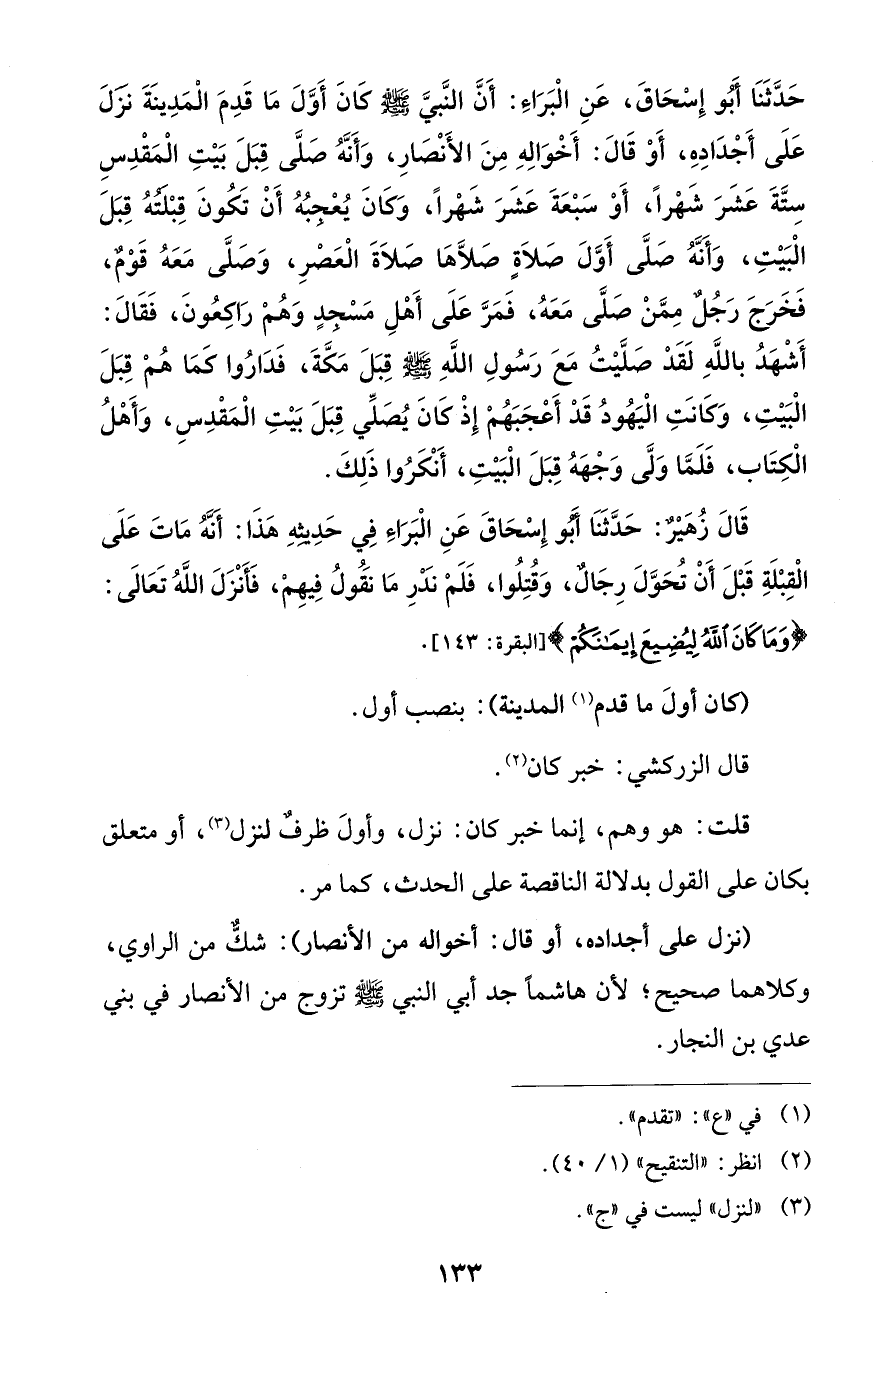 حَدَّثَنَا أَبُو إِسْحَاقَ، عَنِ الْبَرَاءِ: أَنَّ النَّبِيَّ ﷺ كَانَ أَوَّلَ مَا قَدِمَ الْمَدِينَةَ نَزَلَ
عَلَى أَجْدَادِهِ، أَوْ قَالَ: أَخْوَالِهِ مِنَ الأَنْصَارِ، وَأَنَّهُ صَلَّى قِبَلَ بَيْتِ الْمَقْدِسِ
سِتَّةَ عَشَرَ شَهْراً، أَوْ سَبْعَةَ عَشَرَ شَهْراً، وَكَانَ يُعْجِبُهُ أَنْ تَكُونَ قِبْلَتُهُ قِبَلَ
الْبَيْتِ، وَأَنَّهُ صَلَّى أَوَّلَ صَلاَةٍ صَلاَّهَا صَلاَةَ الْعَصْرِ، وَصَلَّى مَعَهُ قَوْمٌ،
فَخَرَجَ رَجُلٌ مِمَّنْ صَلَّى مَعَهُ، فَمَرَّ عَلَى أَهْلِ مَسْجِدٍ وَهُمْ رَاكِعُونَ، فَقَالَ:
أَشْهَدُ بِاللَّهِ لَقَدْ صَلَّيْتُ مَعَ رَسُولِ اللَّهِ ﷺ قِبَلَ مَكَّةَ، فَدَارُوا كَمَا هُمْ قِبَلَ
الْبَيْتِ، وَكَانَتِ الْيَهُودُ قَدْ أَعْجَبَهُمْ إِذْ كَانَ يُصَلِّي قِبَلَ بَيْتِ الْمَقْدِسِ، وَأَهْلُ
الْكِتَابِ، فَلَمَّا وَلَّى وَجْهَهُ قِبَلَ الْبَيْتِ، أَنْكَرُوا ذَلِكَ.
قَالَ زُهَيْرٌ: حَدَّثَنَا أَبُو إِسْحَاقَ عَنِ الْبَرَاءِ فِي حَدِيثِهِ هَذَا: أَنَّهُ مَاتَ عَلَى
الْقِبْلَةِ قَبْلَ أَنْ تُحَوَّلَ رِجَالٌ، وَقُتِلُوا، فَلَمْ نَدْرِ مَا نَقُولُ فِيهِمْ، فَأَنْزَلَ اللَّهُ تَعَالَى:
﴿وَمَا كَانَ ٱللَّهُ لِيُضِيعَ إِيمَٰنَكُمْ﴾[البقرة: ١٤٣].
(كان أولَ ما قدم(١) المدينة): بنصب أول.
قال الزركشي: خبر كان(٢).
قلت: هو وهم، إنما خبر كان: نزل، وأولَ ظرفٌ لنزل(٣)، أو متعلق
بكان على القول بدلالة الناقصة على الحدث، كما مر.
(نزل على أجداده، أو قال: أخواله من الأنصار): شكٌّ من الراوي،
وكلاهما صحيح؛ لأن هاشماً جد أبي النبي ﷺ تزوج من الأنصار في بني
عدي بن النجار.
(١) في «ع»: «تقدم».
(٢) انظر: «التنقيح» (١/ ٤٠).
(٣) «لنزل» ليست في «ج».
١٣٣